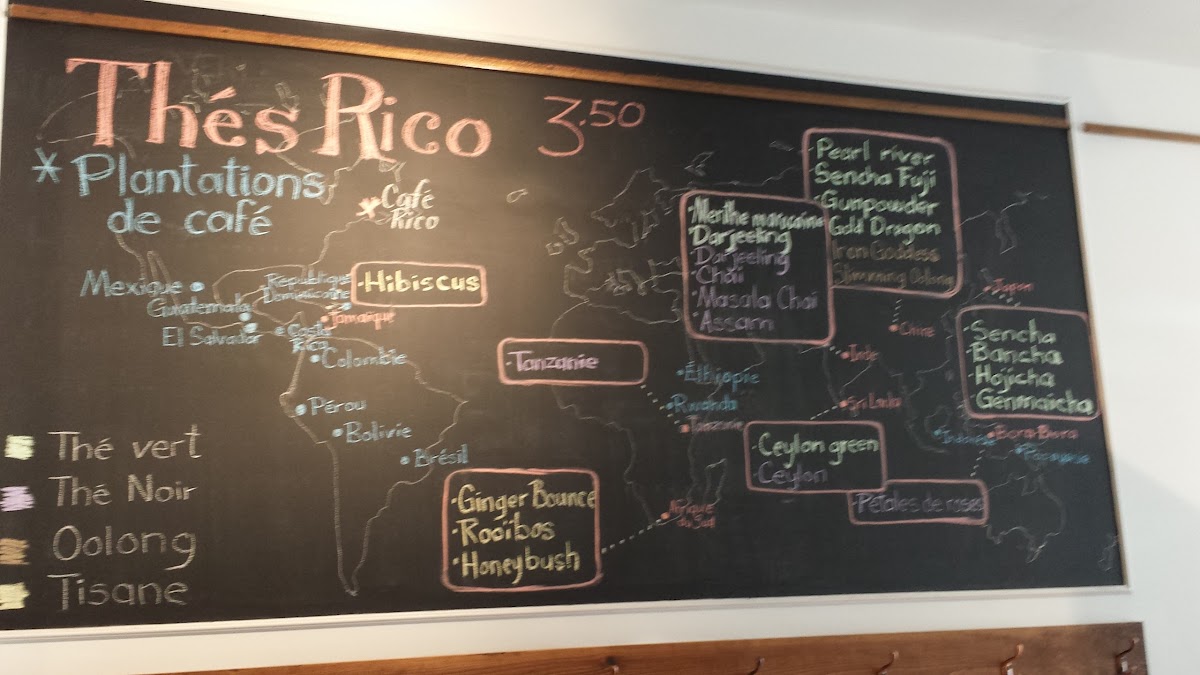 Thés Rico 3.50
* Plantations
de café
Café
Rico
Mexique
Guatemala
El Salvador
République
Dominicaine
Jamaïque
Costa
Rica
Colombie
Pérou
Bolivie
Brésil
·Hibiscus
·Tanzanie
·Éthiopie
Rwanda
Tanzanie
·Ginger Bounce
·Rooïbos
·Honeybush
Afrique
du Sud
·Menthe marocaine
·Darjeeling
·Darjeeling
·Chai
·Masala Chai
·Assam
·Pearl river
·Sencha Fuji
·Gunpowder
·Gold Dragon
·Iron Goddess
·Slimming Oolong
Japon
Chine
Inde
Sri Lanka
·Sencha
·Bancha
·Hojicha
·Genmaicha
·Ceylon green
·Ceylon
Bora-Bora
·Pétales de roses
Thé vert
Thé Noir
Oolong
Tisane